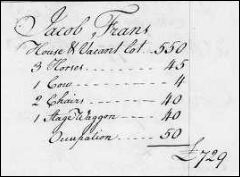 Jacob Frans
House & Vacant Lot . 550
3 Horses . . . . . . . 45
1 Cow . . . . . . . . . 4
2 Chairs . . . . . . . 40
1 Stage Waggon . . . . 40
Occupation . . . . . 50
£729